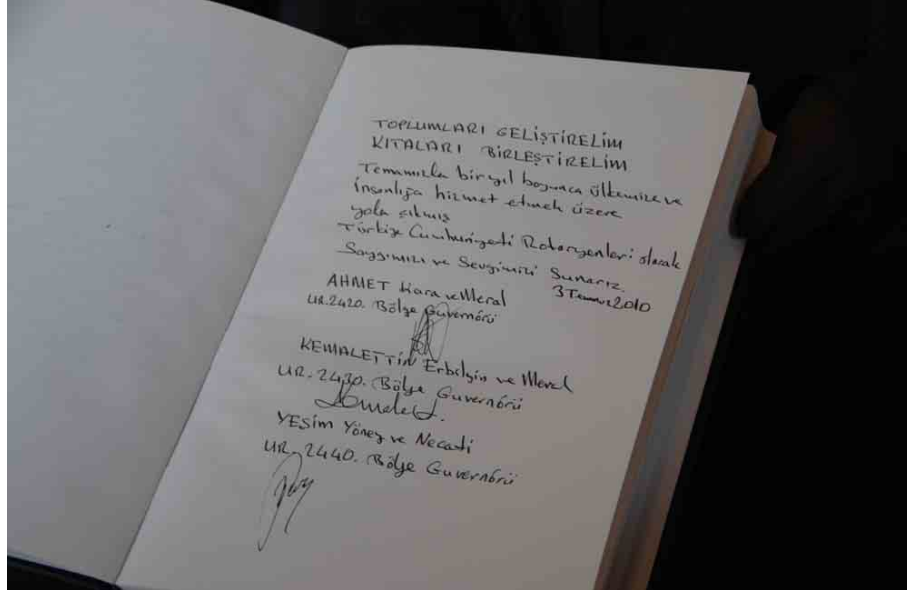 TOPLUMLARI GELİŞTİRELİM
KITALARI BİRLEŞTİRELİM
Temamızla bir yıl boyunca ülkemize ve
insanlığa hizmet etmek üzere
yola çıkmış
Türkiye Cumhuriyeti Rotaryenleri olarak
Saygımızı ve Sevgimizi Sunarız.
3 Temmuz 2010
AHMET Kara ve Meral
UR.2420. Bölge Guvernörü
KEMALETTİN Erbilgin ve Meral
UR. 2430. Bölge Guvernörü
YEŞİM Yöney ve Necati
UR. 2440. Bölge Guvernörü